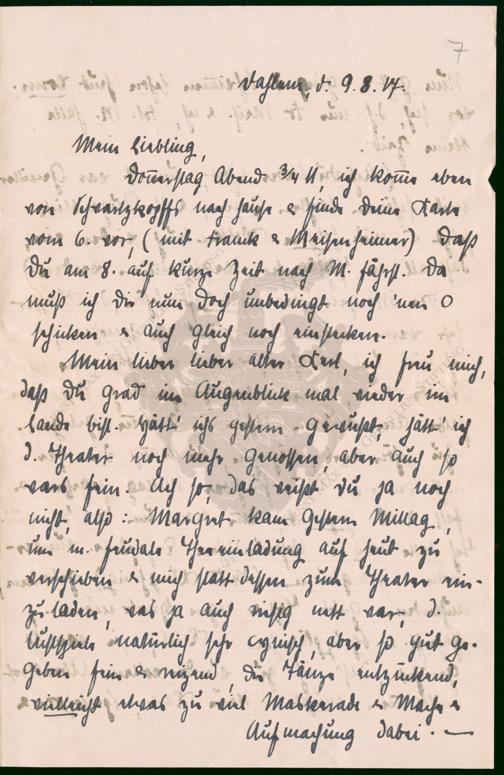 7
Dahlem, d. 9.8.17.
Mein Liebling,
Donnerstag Abend ¾ 11, ich komme eben
von Schwartzkopffs nach Hause & finde deine Karte
vom 6. vor, (mit Franck & Meisenheimer) daß
Du am 8. auf kurze Zeit nach M. fährst. Da
muß ich Dir nun doch unbedingt noch 'nen O
schicken & auch gleich noch einstecken.
Mein lieber lieber alter Kerl, ich freu mich,
daß Du grad im Augenblick mal wieder im
Lande bist. Hätt' ichs gestern gewußt hätt' ich
d. Theater noch mehr genossen, aber auch so
wars fein. Ach so, das weißt Du ja noch
nicht, also: Margret kam gestern Mittag,
um m. feudale Theeeinladung auf heut zu
verschieben & mich statt dessen zum Theater ein-
zuladen, was ja auch riesig nett war, d.
Lustspiele natürlich sehr cynisch, aber so gut ge-
geben fein & reizend, die Tänze entzückend,
vielleicht etwas zu viel Maskerade & Mache &
Aufmachung dabei. —